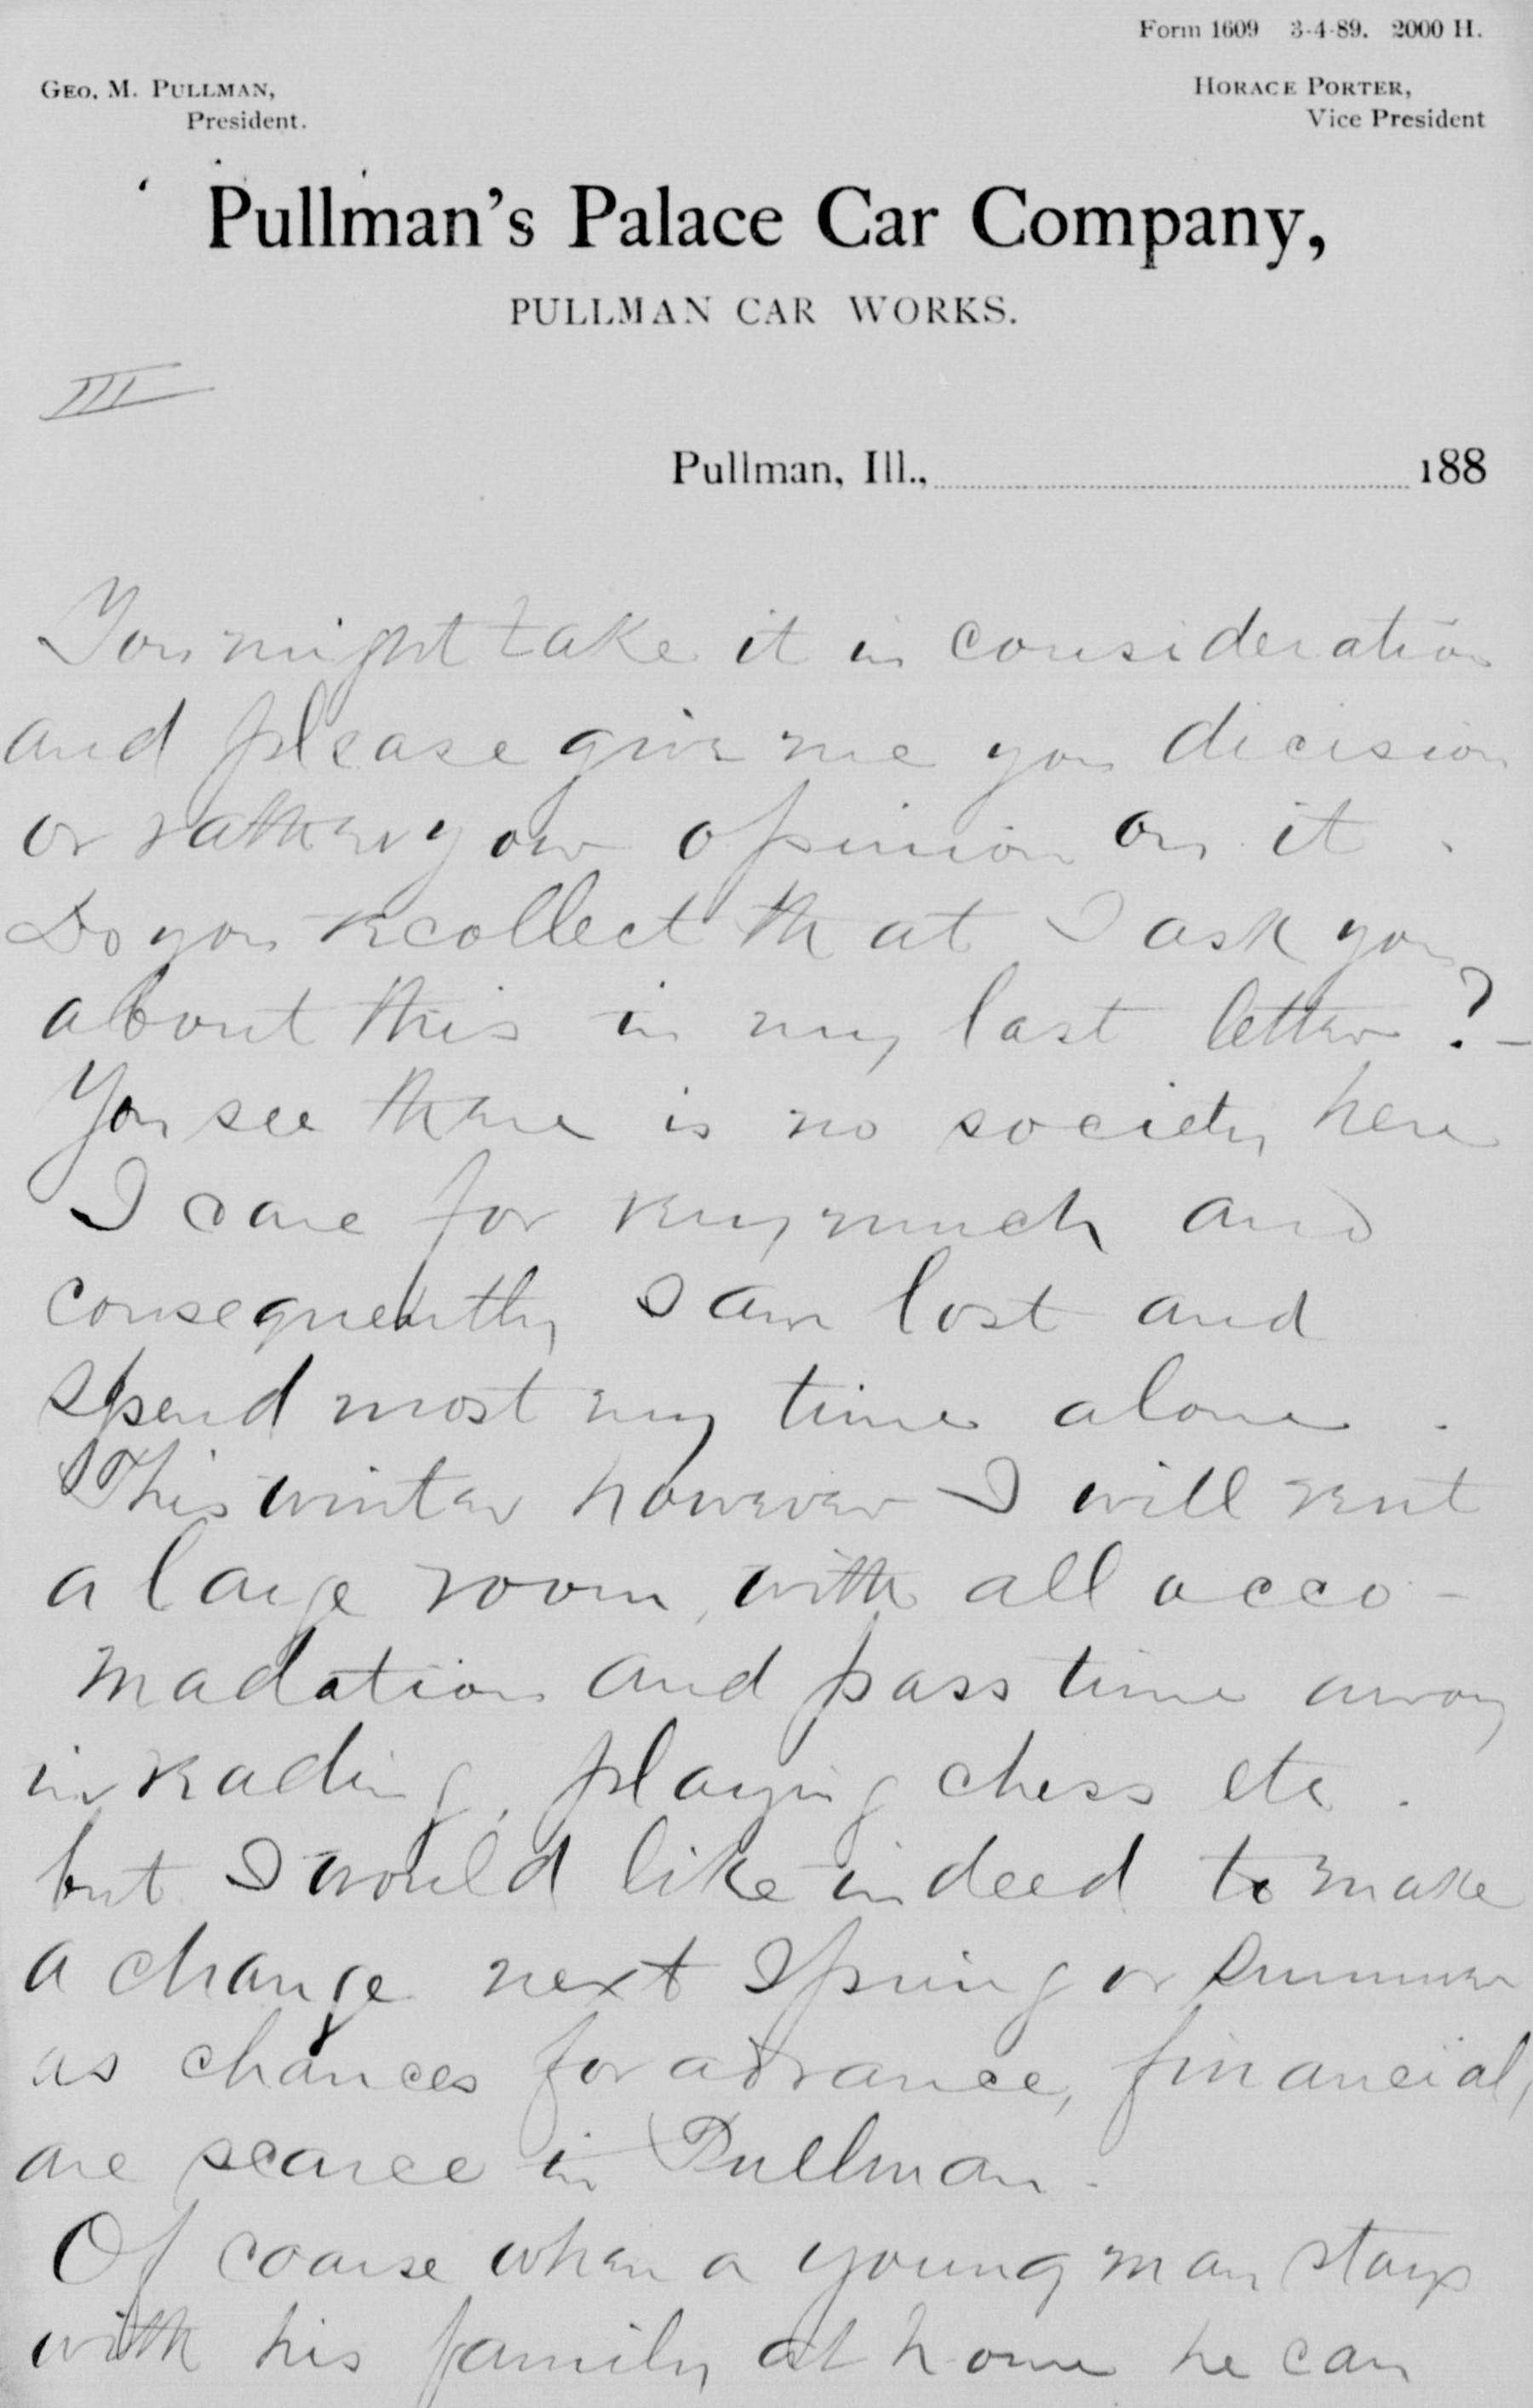 Form 1609 3-4-89. 2000 H.
GEO. M. PULLMAN,
President.
HORACE PORTER,
Vice President
Pullman's Palace Car Company,
PULLMAN CAR WORKS.
III
Pullman, Ill., 188
You might take it in consideration
and please give me you dicision
or rather your opinion on it.
Do you recollect that I ask you
about this in my last letter?-
You see there is no society here
I care for very much and
consequently I am lost and
spend most my time alone.
This winter however I will rent
a large room, with all acco-
madation and pass time away
in reading, playing chess etc.
but I would like indeed to make
a change next Spring or Summer
as chances for advance, financial,
are scarce in Pullman.
Of coarse when a young man stays
with his family at home he can